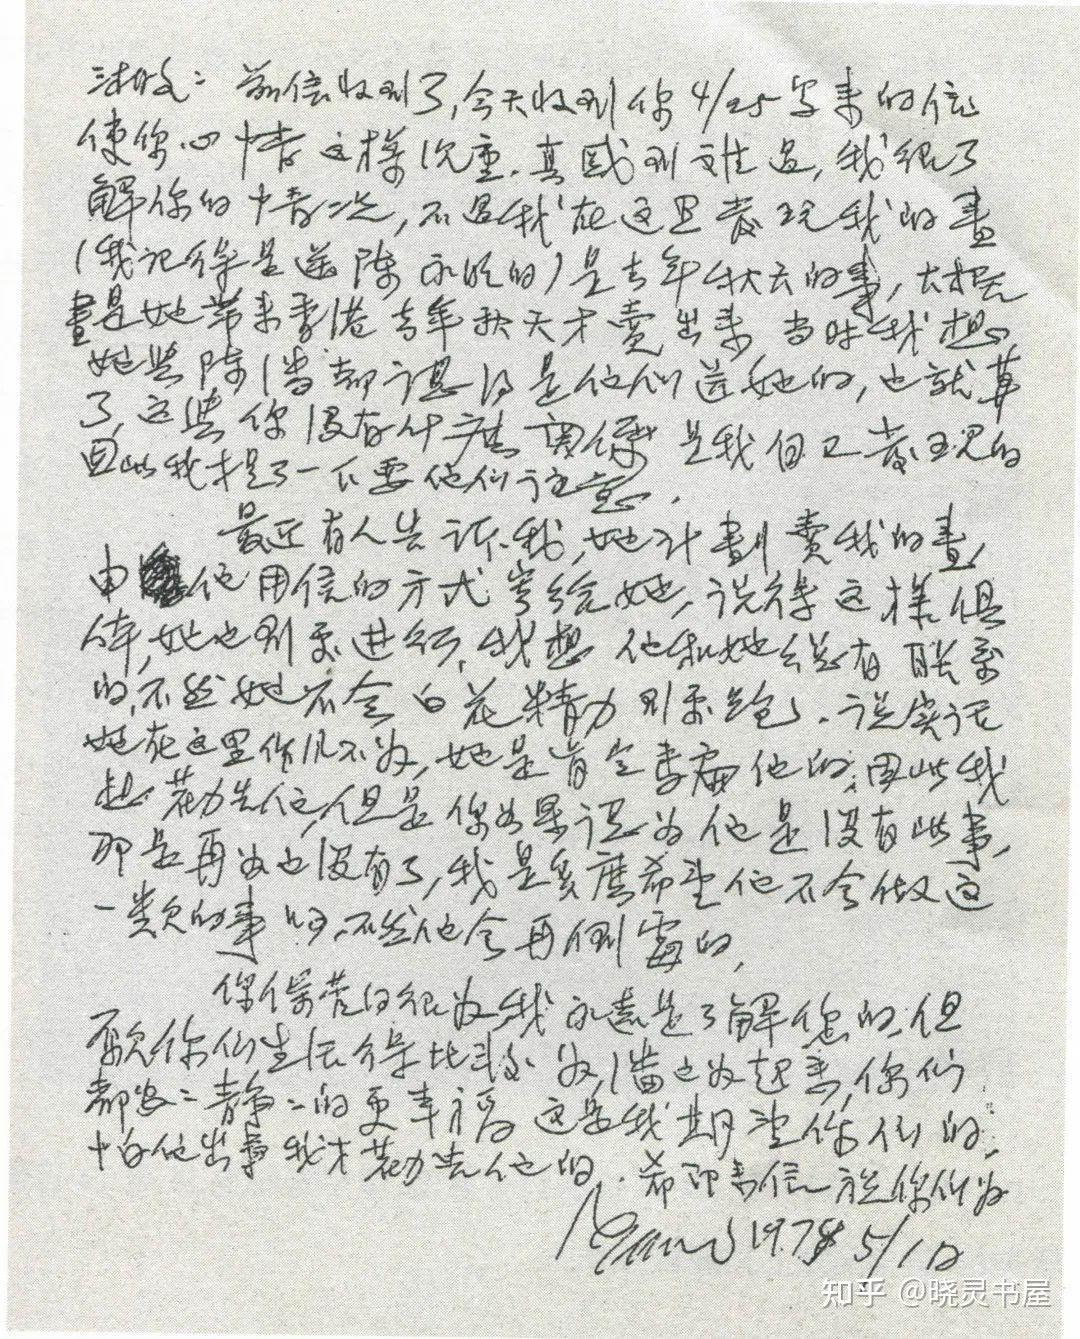 淑文：前信收到了，今天收到你4/25写来的信
使你心情这样沉重，真感到难过，我很了
解你的情况，不过我在这里发现我的畫
（我记得是送陈 的）是去年秋天的事，大概
畫是她带来香港去年秋天才賣出来 当时我想
她与陈潘都 是他们送她的，也就算
了，这与你没有什广 关係 是我自己发现的
因此我才提了一下要他们注意，
最近有人告诉我，她计劃賣我的畫，
由 他用信的方式寄给她，说得这样俱
体，她也到处进行，我想 他和她总有联系
的，不然她不会白花精力到处跑，说实话
她在这里作风不好，她是肯定 他的，因此我
想劝告他，但是你如果认为他是没有此事，
那是再好也没有了，我是多广希望他不会做这
一类的事 ，不然他会再倒霉的，
你保管的很好，我永远是了解您的，但
愿你们生活得比较好，潘也好起来，你们
都安安静静的更幸福 这是我期望你们的，
怕他出事我才劝告他的，希即来信 祝你们好
1978 5/12
知乎 @晓灵书屋